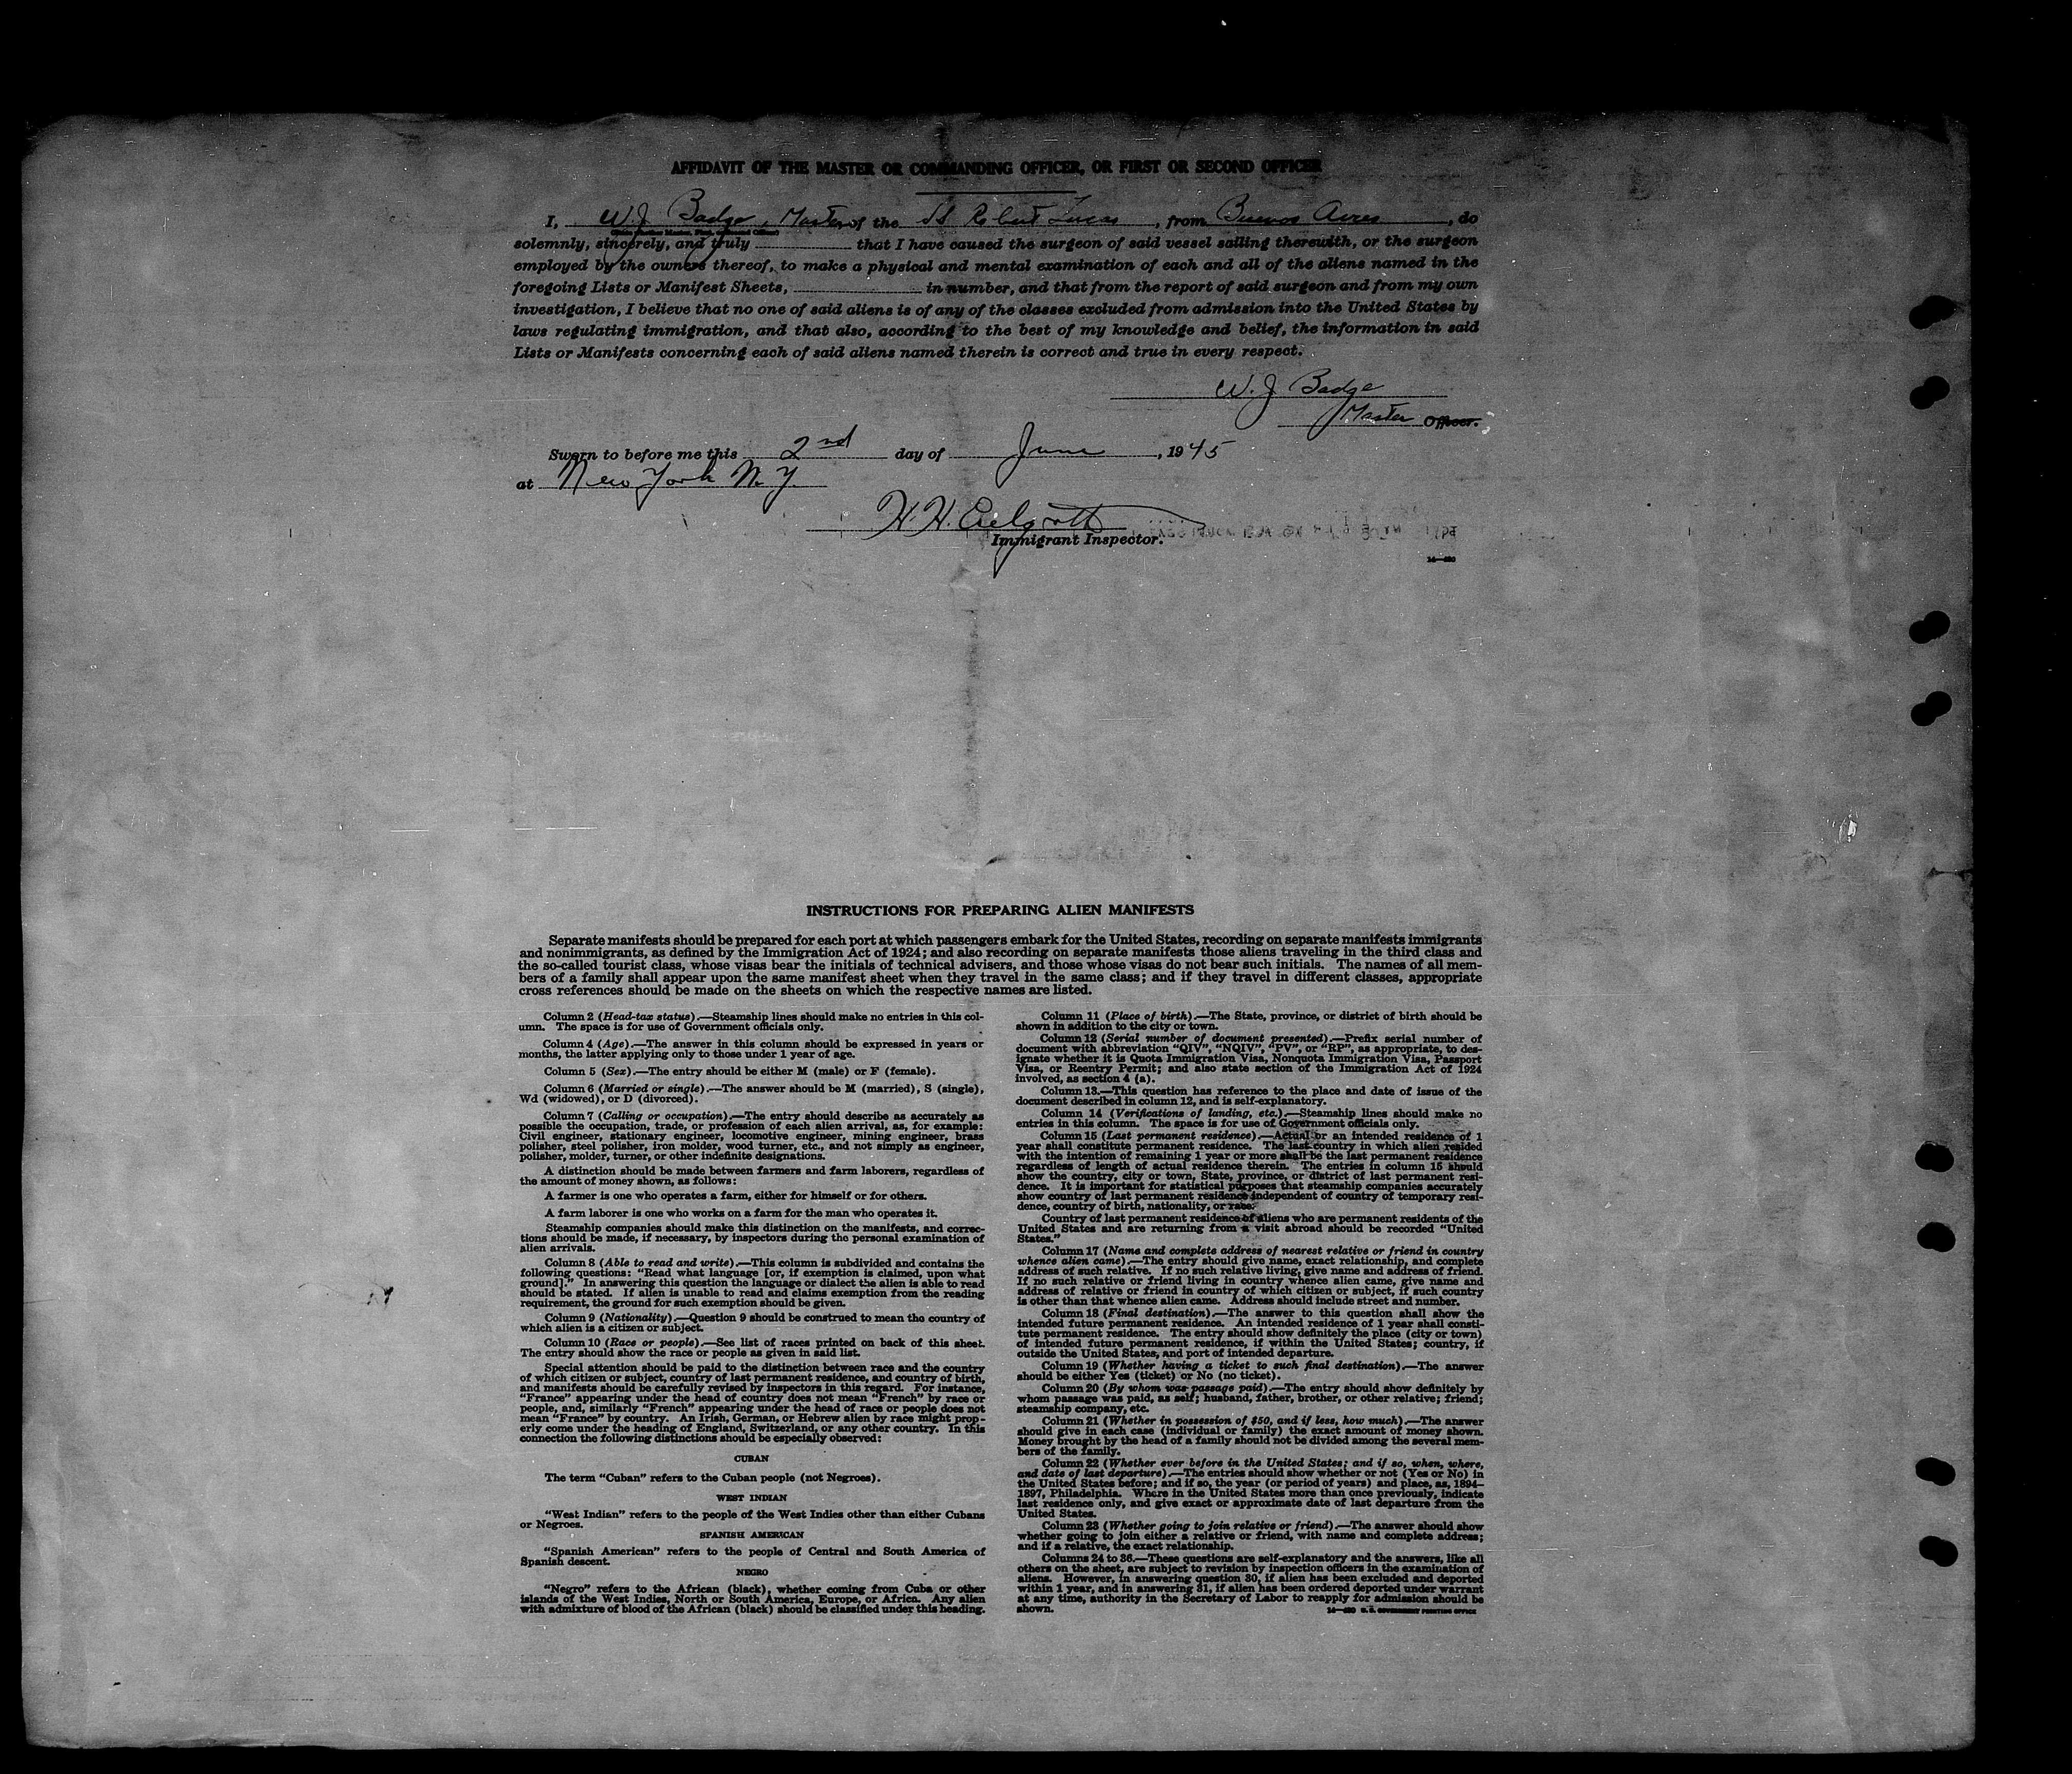 AFFIDAVIT OF THE MASTER OR COMMANDING OFFICER, OR FIRST OR SECOND OFFICER
I, W.J. Badge, Master of the SS Robert Lucas, from Buenos Aires, do
solemnly, sincerely, and truly that I have caused the surgeon of said vessel sailing therewith, or the surgeon
employed by the owners thereof, to make a physical and mental examination of each and all of the aliens named in the
foregoing Lists or Manifest Sheets, in number, and that from the report of said surgeon and from my own
investigation, I believe that no one of said aliens is of any of the classes excluded from admission into the United States by
laws regulating immigration, and that also, according to the best of my knowledge and belief, the information in said
Lists or Manifests concerning each of said aliens named therein is correct and true in every respect.
W. J. Badge
Master Officer.
Sworn to before me this 2nd day of June, 1945
at New York N.Y.
H.H.
Immigrant Inspector.
INSTRUCTIONS FOR PREPARING ALIEN MANIFESTS
Separate manifests should be prepared for each port at which passengers embark for the United States, recording on separate manifests immigrants
and nonimmigrants, as defined by the Immigration Act of 1924; and also recording on separate manifests those aliens traveling in the third class and
the so-called tourist class, whose visas bear the initials of technical advisers, and those whose visas do not bear such initials. The names of all mem-
bers of a family shall appear upon the same manifest sheet when they travel in the same class; and if they travel in different classes, appropriate
cross references should be made on the sheets on which the respective names are listed.
Column 2 (Head-tax status).—Steamship lines should make no entries in this col-
umn. The space is for use of Government officials only.
Column 4 (Age).—The answer in this column should be expressed in years or
months, the latter applying only to those under 1 year of age.
Column 5 (Sex).—The entry should be either M (male) or F (female).
Column 6 (Married or single).—The answer should be M (married), S (single),
Wd (widowed), or D (divorced).
Column 7 (Calling or occupation).—The entry should describe as accurately as
possible the occupation, trade, or profession of each alien arrival, as, for example:
Civil engineer, stationary engineer, locomotive engineer, mining engineer, brass
polisher, steel polisher, iron molder, wood turner, etc., and not simply as engineer,
polisher, molder, turner, or other indefinite designations.
A distinction should be made between farmers and farm laborers, regardless of
the amount of money shown, as follows:
A farmer is one who operates a farm, either for himself or for others.
A farm laborer is one who works on a farm for the man who operates it.
Steamship companies should make this distinction on the manifests, and correc-
tions should be made, if necessary, by inspectors during the personal examination of
alien arrivals.
Column 8 (Able to read and write).—This column is subdivided and contains the
following questions: "Read what language [or, if exemption is claimed, upon what
ground]." In answering this question the language or dialect the alien is able to read
should be stated. If alien is unable to read and claims exemption from the reading
requirement, the ground for such exemption should be given.
Column 9 (Nationality).—Question 9 should be construed to mean the country of
which alien is a citizen or subject.
Column 10 (Race or people).—See list of races printed on back of this sheet.
The entry should show the race or people as given in said list.
Special attention should be paid to the distinction between race and the country
of which citizen or subject, country of last permanent residence, and country of birth,
and manifests should be carefully revised by inspectors in this regard. For instance,
"France" appearing under the head of country does not mean "French" by race or
people, and, similarly "French" appearing under the head of race or people does not
mean "France" by country. An Irish, German, or Hebrew alien by race might prop-
erly come under the heading of England, Switzerland, or any other country. In this
connection the following distinctions should be especially observed:
CUBAN
The term "Cuban" refers to the Cuban people (not Negroes).
WEST INDIAN
"West Indian" refers to the people of the West Indies other than either Cubans
or Negroes.
SPANISH AMERICAN
"Spanish American" refers to the people of Central and South America of
Spanish descent.
NEGRO
"Negro" refers to the African (black), whether coming from Cuba or other
islands of the West Indies, North or South America, Europe, or Africa. Any alien
with admixture of blood of the African (black) should be classified under this heading.
Column 11 (Place of birth).—The State, province, or district of birth should be
shown in addition to the city or town.
Column 12 (Serial number of document presented).—Prefix serial number of
document with abbreviation "QIV", "NQIV", "PV", or "RP", as appropriate, to des-
ignate whether it is Quota Immigration Visa, Nonquota Immigration Visa, Passport
Visa, or Reentry Permit; and also state section of the Immigration Act of 1924
involved, as section 4 (a).
Column 13.—This question has reference to the place and date of issue of the
document described in column 12, and is self-explanatory.
Column 14 (Verifications of landing, etc.).—Steamship lines should make no
entries in this column. The space is for use of Government officials only.
Column 15 (Last permanent residence).—Actual or an intended residence of 1
year shall constitute permanent residence. The last country in which alien resided
with the intention of remaining 1 year or more shall be the last permanent residence
regardless of length of actual residence therein. The entries in column 15 should
show the country, city or town, State, province, or district of last permanent resi-
dence. It is important for statistical purposes that steamship companies accurately
show country of last permanent residence independent of country of temporary resi-
dence, country of birth, nationality, or race.
Country of last permanent residence of aliens who are permanent residents of the
United States and are returning from a visit abroad should be recorded "United
States."
Column 17 (Name and complete address of nearest relative or friend in country
whence alien came).—The entry should give name, exact relationship, and complete
address of such relative. If no such relative living, give name and address of friend.
If no such relative or friend living in country whence alien came, give name and
address of relative or friend in country of which citizen or subject, if such country
is other than that whence alien came. Address should include street and number.
Column 18 (Final destination).—The answer to this question shall show the
intended future permanent residence. An intended residence of 1 year shall consti-
tute permanent residence. The entry should show definitely the place (city or town)
of intended future permanent residence, if within the United States; country, if
outside the United States, and port of intended departure.
Column 19 (Whether having a ticket to such final destination).—The answer
should be either Yes (ticket) or No (no ticket).
Column 20 (By whom was passage paid).—The entry should show definitely by
whom passage was paid, as self; husband, father, brother, or other relative; friend;
steamship company, etc.
Column 21 (Whether in possession of $50, and if less, how much).—The answer
should give in each case (individual or family) the exact amount of money shown.
Money brought by the head of a family should not be divided among the several mem-
bers of the family.
Column 22 (Whether ever before in the United States; and if so, when, where,
and date of last departure).—The entries should show whether or not (Yes or No) in
the United States before; and if so, the year (or period of years) and place, as, 1894–
1897, Philadelphia. Where in the United States more than once previously, indicate
last residence only, and give exact or approximate date of last departure from the
United States.
Column 23 (Whether going to join relative or friend).—The answer should show
whether going to join either a relative or friend, with name and complete address;
and if a relative, the exact relationship.
Columns 24 to 36.—These questions are self-explanatory and the answers, like all
others on the sheet, are subject to revision by inspection officers in the examination of
aliens. However, in answering question 30, if alien has been excluded and deported
within 1 year, and in answering 31, if alien has been ordered deported under warrant
at any time, authority in the Secretary of Labor to reapply for admission should be
shown.
U. S. GOVERNMENT PRINTING OFFICE